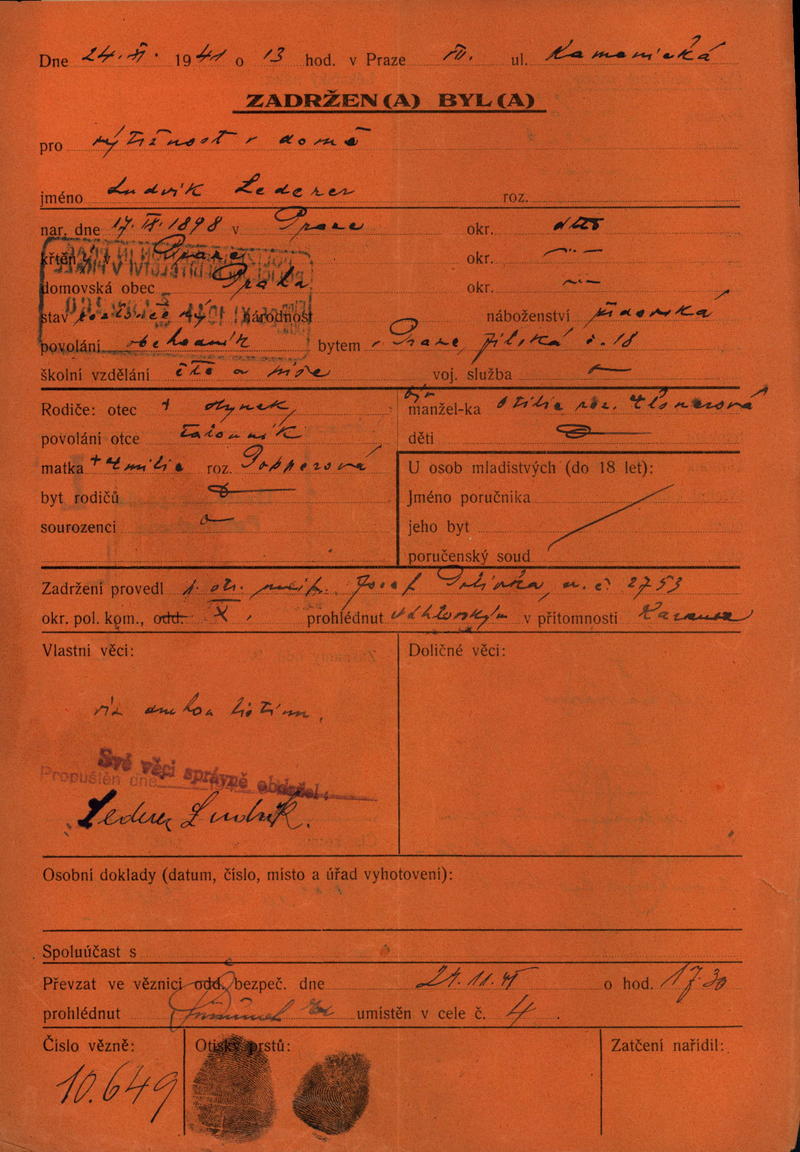 Dne 24. XI. 1941 o 13 hod. v Praze VII. ul. Kamenická
ZADRŽEN(A) BYL(A)
pro výtržnost v domě
jméno Ludvík Lederer roz.
nar. dne 17. IX. 1898 v Praze okr. dtto
křtěn v Praze okr.
domovská obec Praha okr.
stav národnost náboženství židovská
povolání obchodník bytem v Praze, Jilská č. 18
školní vzdělání čte a píše voj. služba
Rodiče: otec † Hynek
manžel-ka Otilie roz. Elsnerová
povolání otce továrník
děti
matka † Emilie roz. Popperová
U osob mladistvých (do 18 let):
byt rodičů
Jméno poručníka
sourozenci
jeho byt
poručenský soud
Zadržení provedl Josef č. 2753
okr. pol. kom., odd. X. prohlédnut v přítomnosti
Vlastní věci:
Doličné věci:
viz druhou listinu.
Své věci správně obdržel:
Propuštěn dne
Lederer Ludvík.
Osobní doklady (datum, číslo, místo a úřad vyhotovení):
Spoluúčast s
Převzat ve věznici odd. bezpeč. dne 24.11.41 o hod. 17.30
prohlédnut umístěn v cele č. 4.
Číslo vězně:
Otisky prstů:
Zatčení nařídil:
10.649